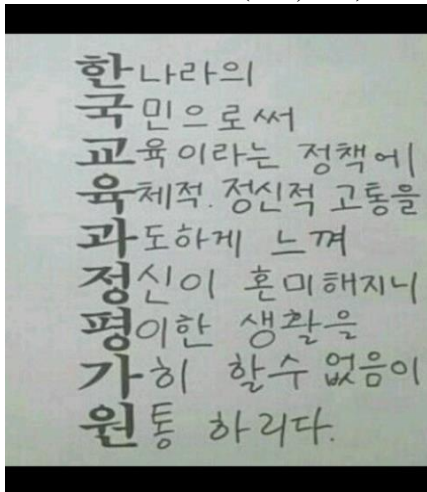 한나라의
국민으로써
교육이라는 정책에
육체적. 정신적 고통을
과도하게 느껴
정신이 혼미해지니
평이한 생활을
가히 할수 없음이
원통 하리다.